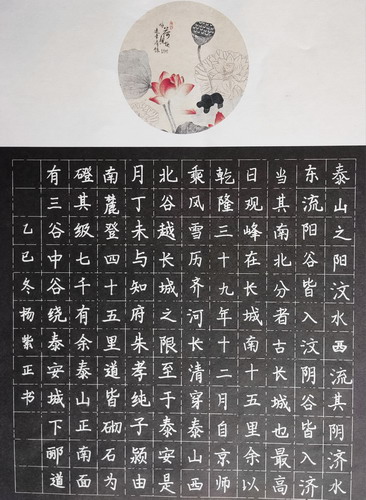 泰山之阳汶水西流其阴济水
东流阳谷皆入汶阴谷皆入济
当其南北分者古长城也最高
日观峰在长城南十五里余以
乾隆三十九年十二月自京师
乘风雪历齐河长清穿泰山西
北谷越长城之限至于泰安是
月丁未与知府朱孝纯子颍由
南麓登四十五里道皆砌石为
磴其级七千有余泰山正南面
有三谷中谷绕泰安城下郦道
乙巳冬杨紫正书